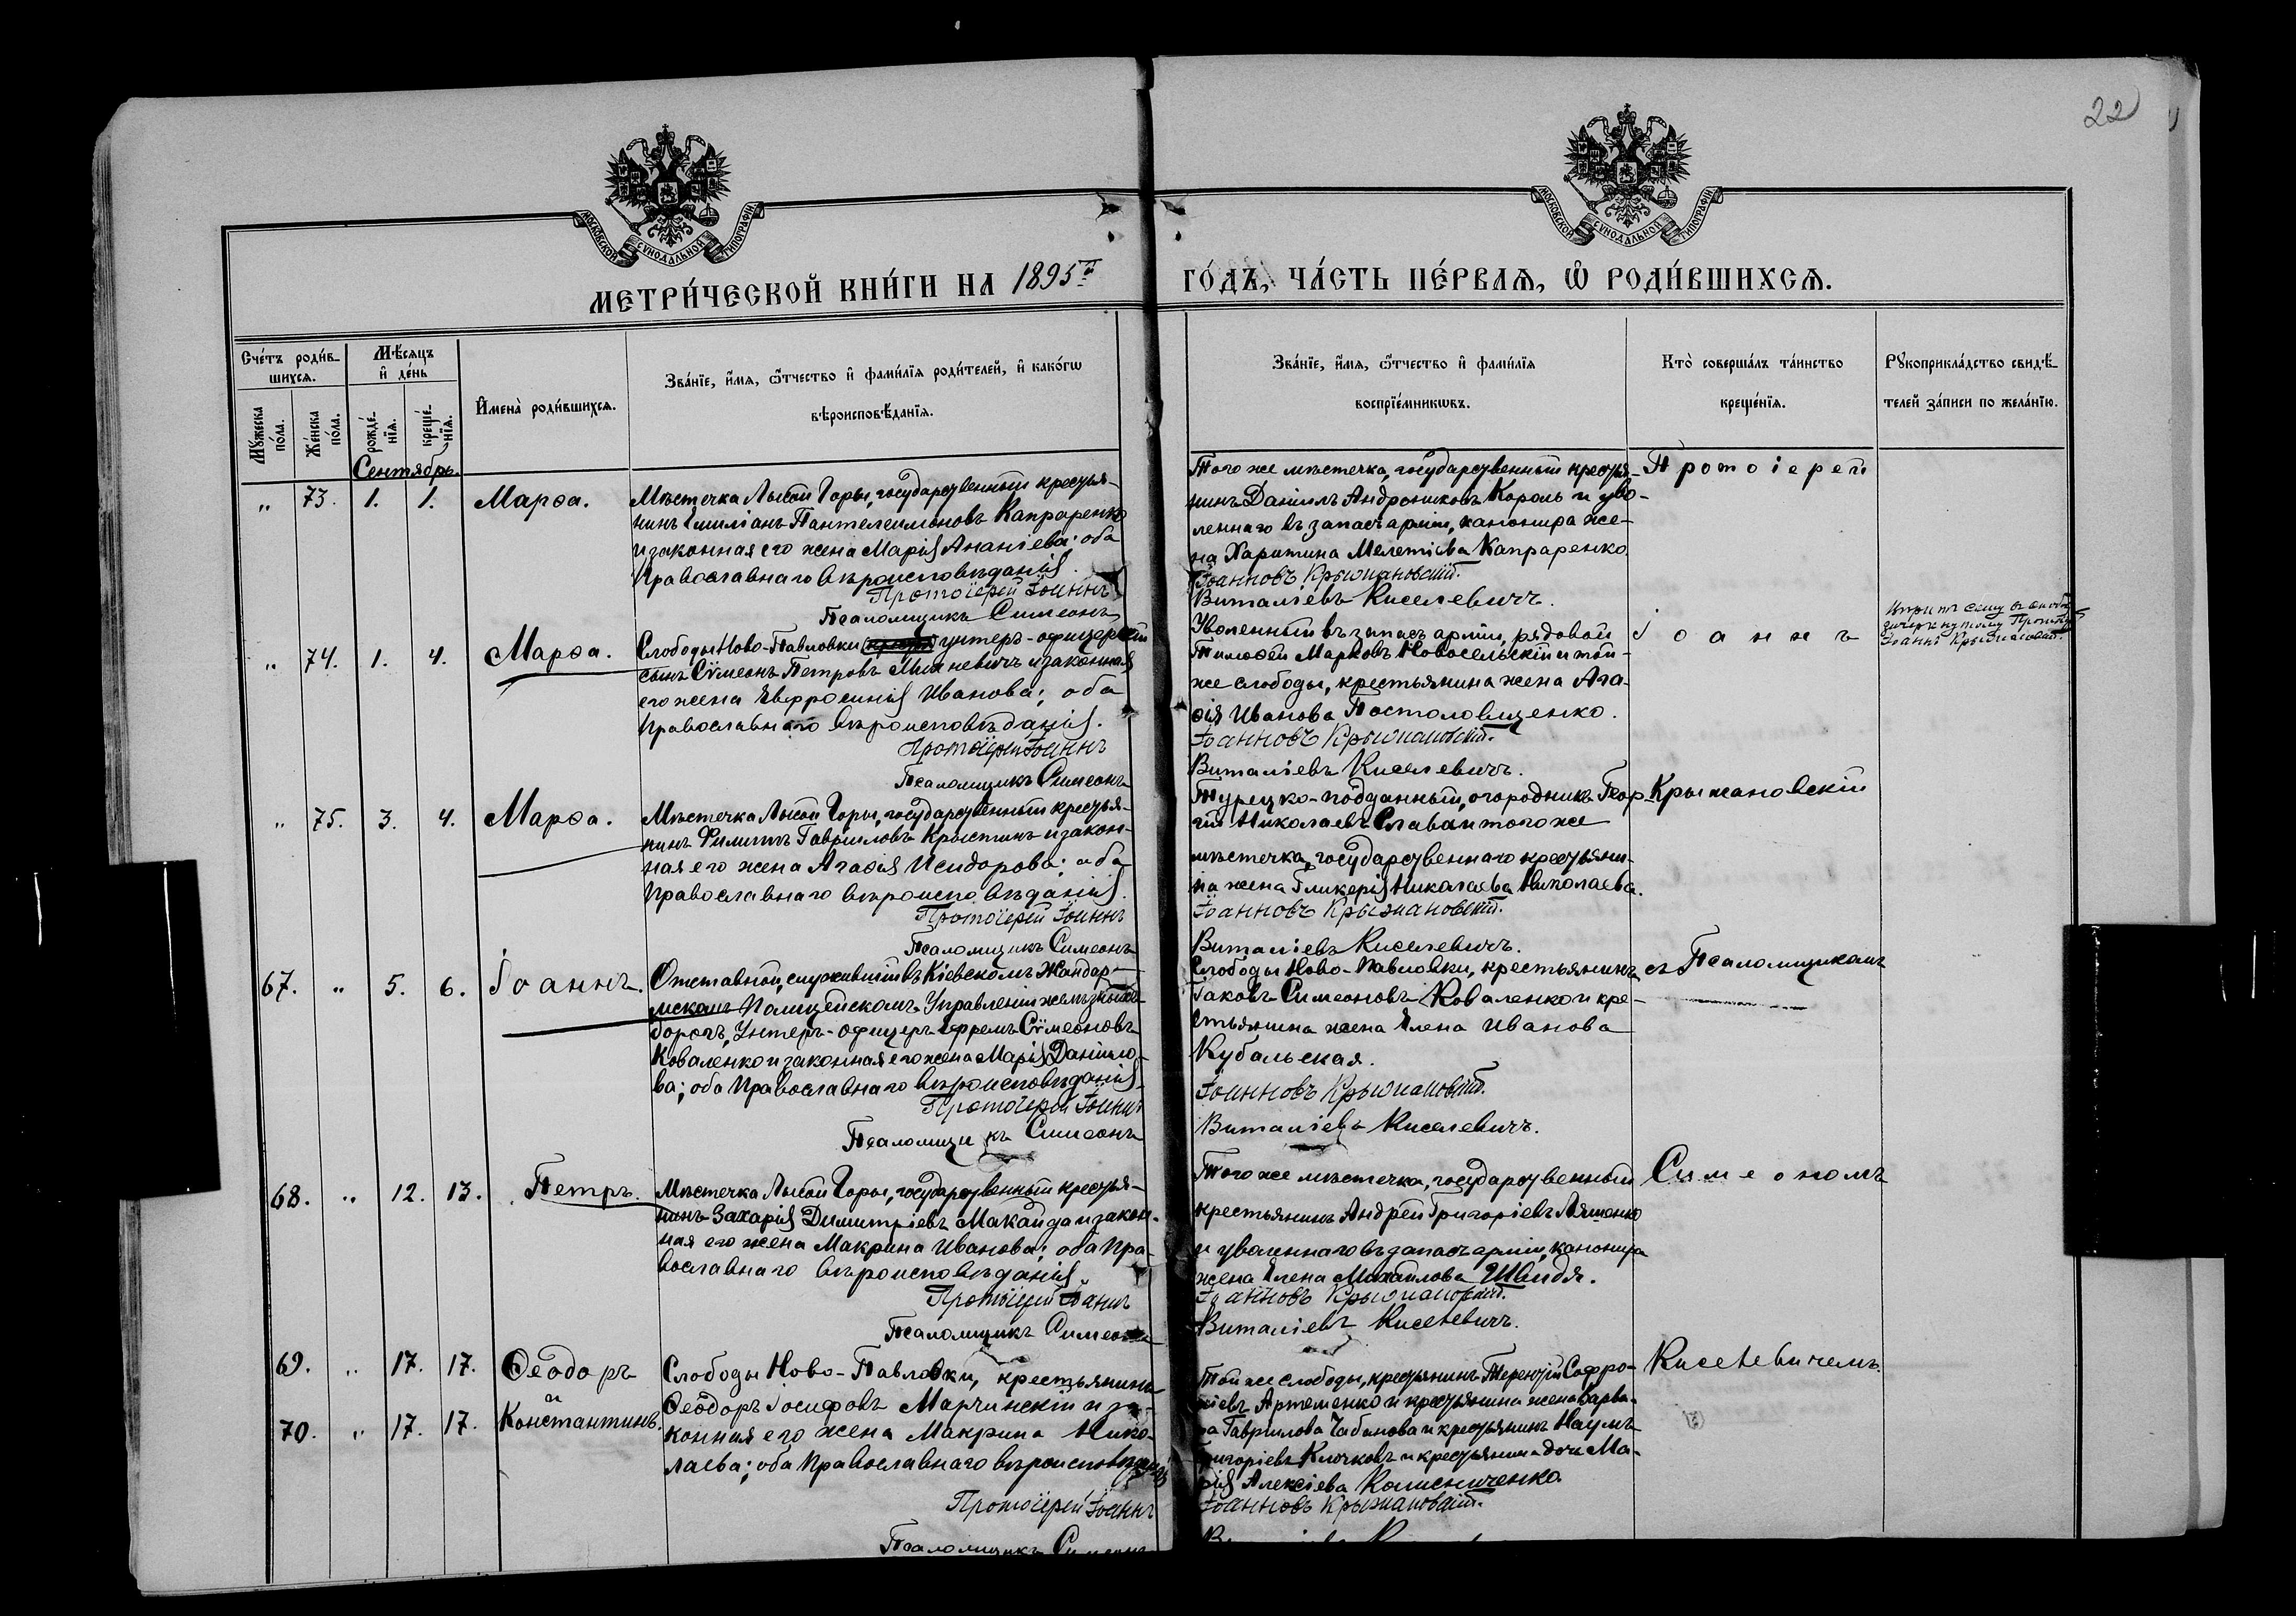 22
МОСКОВСКОЙ СѴНОДАЛЬНОЙ ТИПОГРАФІИ
МОСКОВСКОЙ СѴНОДАЛЬНОЙ ТИПОГРАФІИ
МЕТРИ́ЧЕСКОЙ КНИ́ГИ НА 1895й ГО́ДЪ, ЧА́СТЬ ПЕ́РВАѦ, Ѡ҆ РОДИ́ВШИХСѦ.
Сче́тъ роди́в-
шихсѧ.
Мꙋ́жеска по́ла.
Же́нска по́ла.
Мѣ́сѧцъ и҆ де́нь
рожде́-нїѧ.
креще́-нїѧ.
И҆мена̀ роди́вшихсѧ.
Зва́нїе, и҆́мѧ, ѻ҆́тчество и҆ фами́лїѧ роди́телей, и҆ како́гѡ
вѣроисповѣ́данїѧ.
Зва́нїе, и҆́мѧ, ѻ҆́тчество и҆ фами́лїѧ
воспрїе́мникѡвъ.
Кто̀ соверша́лъ та́инство
креще́нїѧ.
Рꙋкоприкла́дство свидѣ́-
телей за́писи по жела́нїю.
Сентябрь.
„ 73. 1. 1. Марѳа.
Мѣстечка Лысой Горы, государственный крестья-
нинъ Емиліанъ Пантелеимоновъ Капраренко
и законная его жена Марія Ананіева; оба
Православнаго вѣроисповѣданія.
Протоіерей Іоаннъ
Псаломщикъ Симеонъ
Того же мѣстечка, государственный крестья-
нинъ Даніилъ Андрониковъ Король и уво-
леннаго въ запасъ арміи, канонира же-
на Харитина Мелетіева Капраренко.
Іоанновъ Крыжановскій.
Виталіевъ Киселевичъ.
Протоіерей
„ 74. 1. 4. Марѳа.
Слободы Ново-Павловки унтеръ-офицерскій
сынъ Сѵмеонъ Петровъ и законная
его жена Евфросинія Иванова; оба
Православнаго вѣроисповѣданія.
Протоіерей Іоаннъ
Псаломщикъ Симеонъ
Уволенный въ запасъ арміи, рядовой
Тимоѳей Марковъ Новосельскій и той-
же слободы, крестьянина жена Ага-
ѳія Иванова Постоловщенко.
Іоанновъ Крыжановскій.
Виталіевъ Киселевичъ.
Іоаннъ
Іоаннъ Крыжановскій.
„ 75. 3. 4. Марѳа.
Мѣстечка Лысой Горы, государственный крестья-
нинъ Филиппъ Гавриловъ Крыстинъ и закон-
ная его жена Агаѳія Исидорова; оба
Православнаго вѣроисповѣданія.
Протоіерей Іоаннъ
Псаломщикъ Симеонъ
Турецко-подданный, огородникъ Геор-
гій Николаевъ Слава и того же
мѣстечка, государственнаго крестьяни-
на жена Гликерія Николаева Николаева.
Іоанновъ Крыжановскій.
Виталіевъ Киселевичъ.
Крыжановскій
67. „ 5. 6. Іоаннъ.
Отставной, служившій въ Кіевскомъ Жандар-
мскомъ Полицейскомъ Управленіи желѣзныхъ
дорогъ, Унтеръ-офицеръ Ефремъ Сѵмеоновъ
Коваленко и законная его жена Марія Даніило-
ва; оба Православнаго вѣроисповѣданія.
Протоіерей Іоаннъ
Псаломщикъ Симеонъ
Слободы Ново-Павловки, крестьянинъ
Іаковъ Симеоновъ Коваленко и кре-
стьянина жена Елена Иванова
Кубальская.
Іоанновъ Крыжановскій.
Виталіевъ Киселевичъ.
съ Псаломщикомъ
68. „ 12. 13. Петръ.
Мѣстечка Лысой Горы, государственный крестья-
нинъ Захарія Димитріевъ Макайда и закон-
ная его жена Макрина Иванова; оба Пра-
вославнаго вѣроисповѣданія.
Протоіерей Іоаннъ
Псаломщикъ Симеонъ
Того же мѣстечка, государственный
крестьянинъ Андрей Григоріевъ Ляшенко
и уволеннаго въ запасъ арміи, канонира
жена Елена Михайлова Швидя.
Іоанновъ Крыжановскій.
Виталіевъ Киселевичъ.
Симеономъ
69. „ 17. 17. Ѳеодоръ
и
70. „ 17. 17. Константинъ.
Слободы Ново-Павловки, крестьянинъ
Ѳеодоръ Іосифовъ Марчинскій и за-
конная его жена Макрина Нико-
лаева; оба Православнаго вѣроисповѣданія
Протоіерей Іоаннъ
Псаломщикъ Симеонъ
Той же слободы, крестьянинъ Терентій Софро-
ніевъ Артеменко и крестьянина жена Варва-
ра Гаврилова Чабанова и крестьянинъ Наумъ
Григоріевъ Клочковъ и крестьянина дочь Ма-
рія Алексіева Колисниченко
Іоанновъ Крыжановскій.
Киселевичемъ.